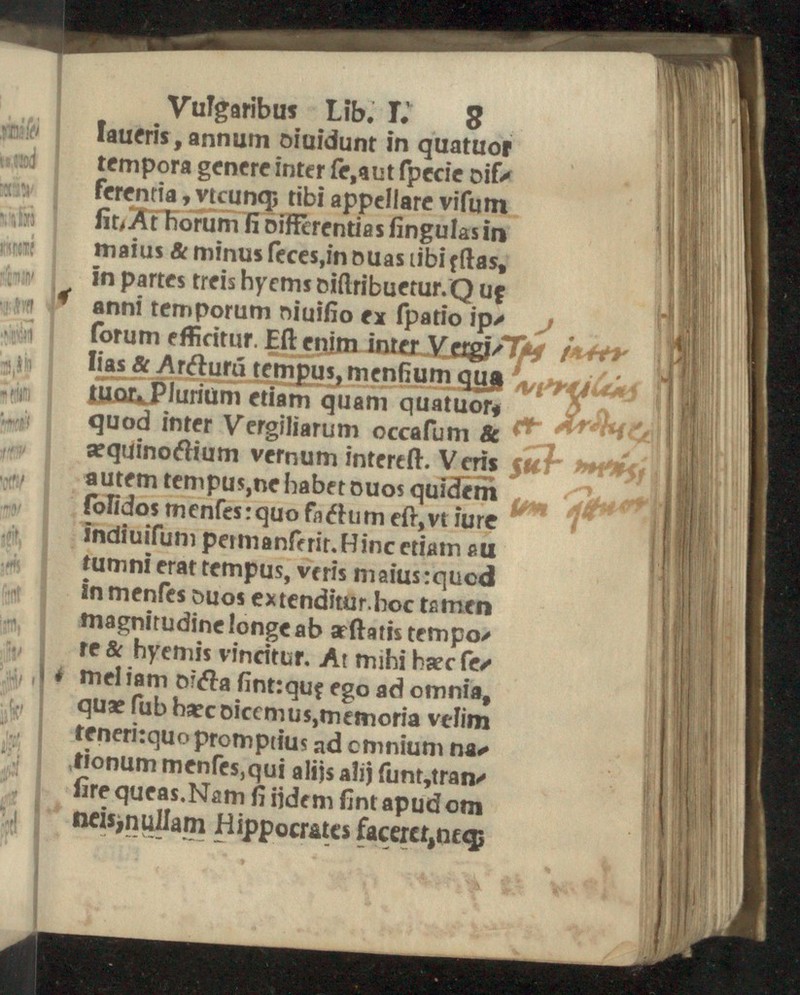 Vulgaribus Lib. I. 8
laueris, annum diuidunt in quatuor
tempora genere inter se, aut specie dif-
ferentia, vtcunq; tibi appellare visum
sit. At horum si differentias singulas in
maius & minus seces, in duas tibi ęstas,
in partes treis hyems distribuetur. Quę
anni temporum diuisio ex spatio ip-
sorum efficitur. Est enim inter Vergi-
lias & Arcturū tempus, mensium qua
tuor. Plurium etiam quam quatuor,
quod inter Vergiliarum occasum &
æquinoctium vernum interest. Veris
autem tempus, ne habet duos quidem
solidos menses: quo factum est, vt iure
indiuisum permanserit. Hinc etiam au
tumni erat tempus, veris maius: quod
in menses duos extenditur. hoc tamen
magnitudine longe ab æstatis tempo-
re & hyemis vincitur. At mihi hæc se-
mel iam dicta sint: quę ego ad omnia,
quæ sub hæc dicemus, memoria velim
teneri: quo promptius ad omnium na-
tionum menses, qui alijs alij sunt, tran-
sire queas. Nam si ijdem sint apud om
neis, nullam Hippocrates faceret, neq;
Tps inter
vergilias
et Arctur
sūt mensi
um qtuor